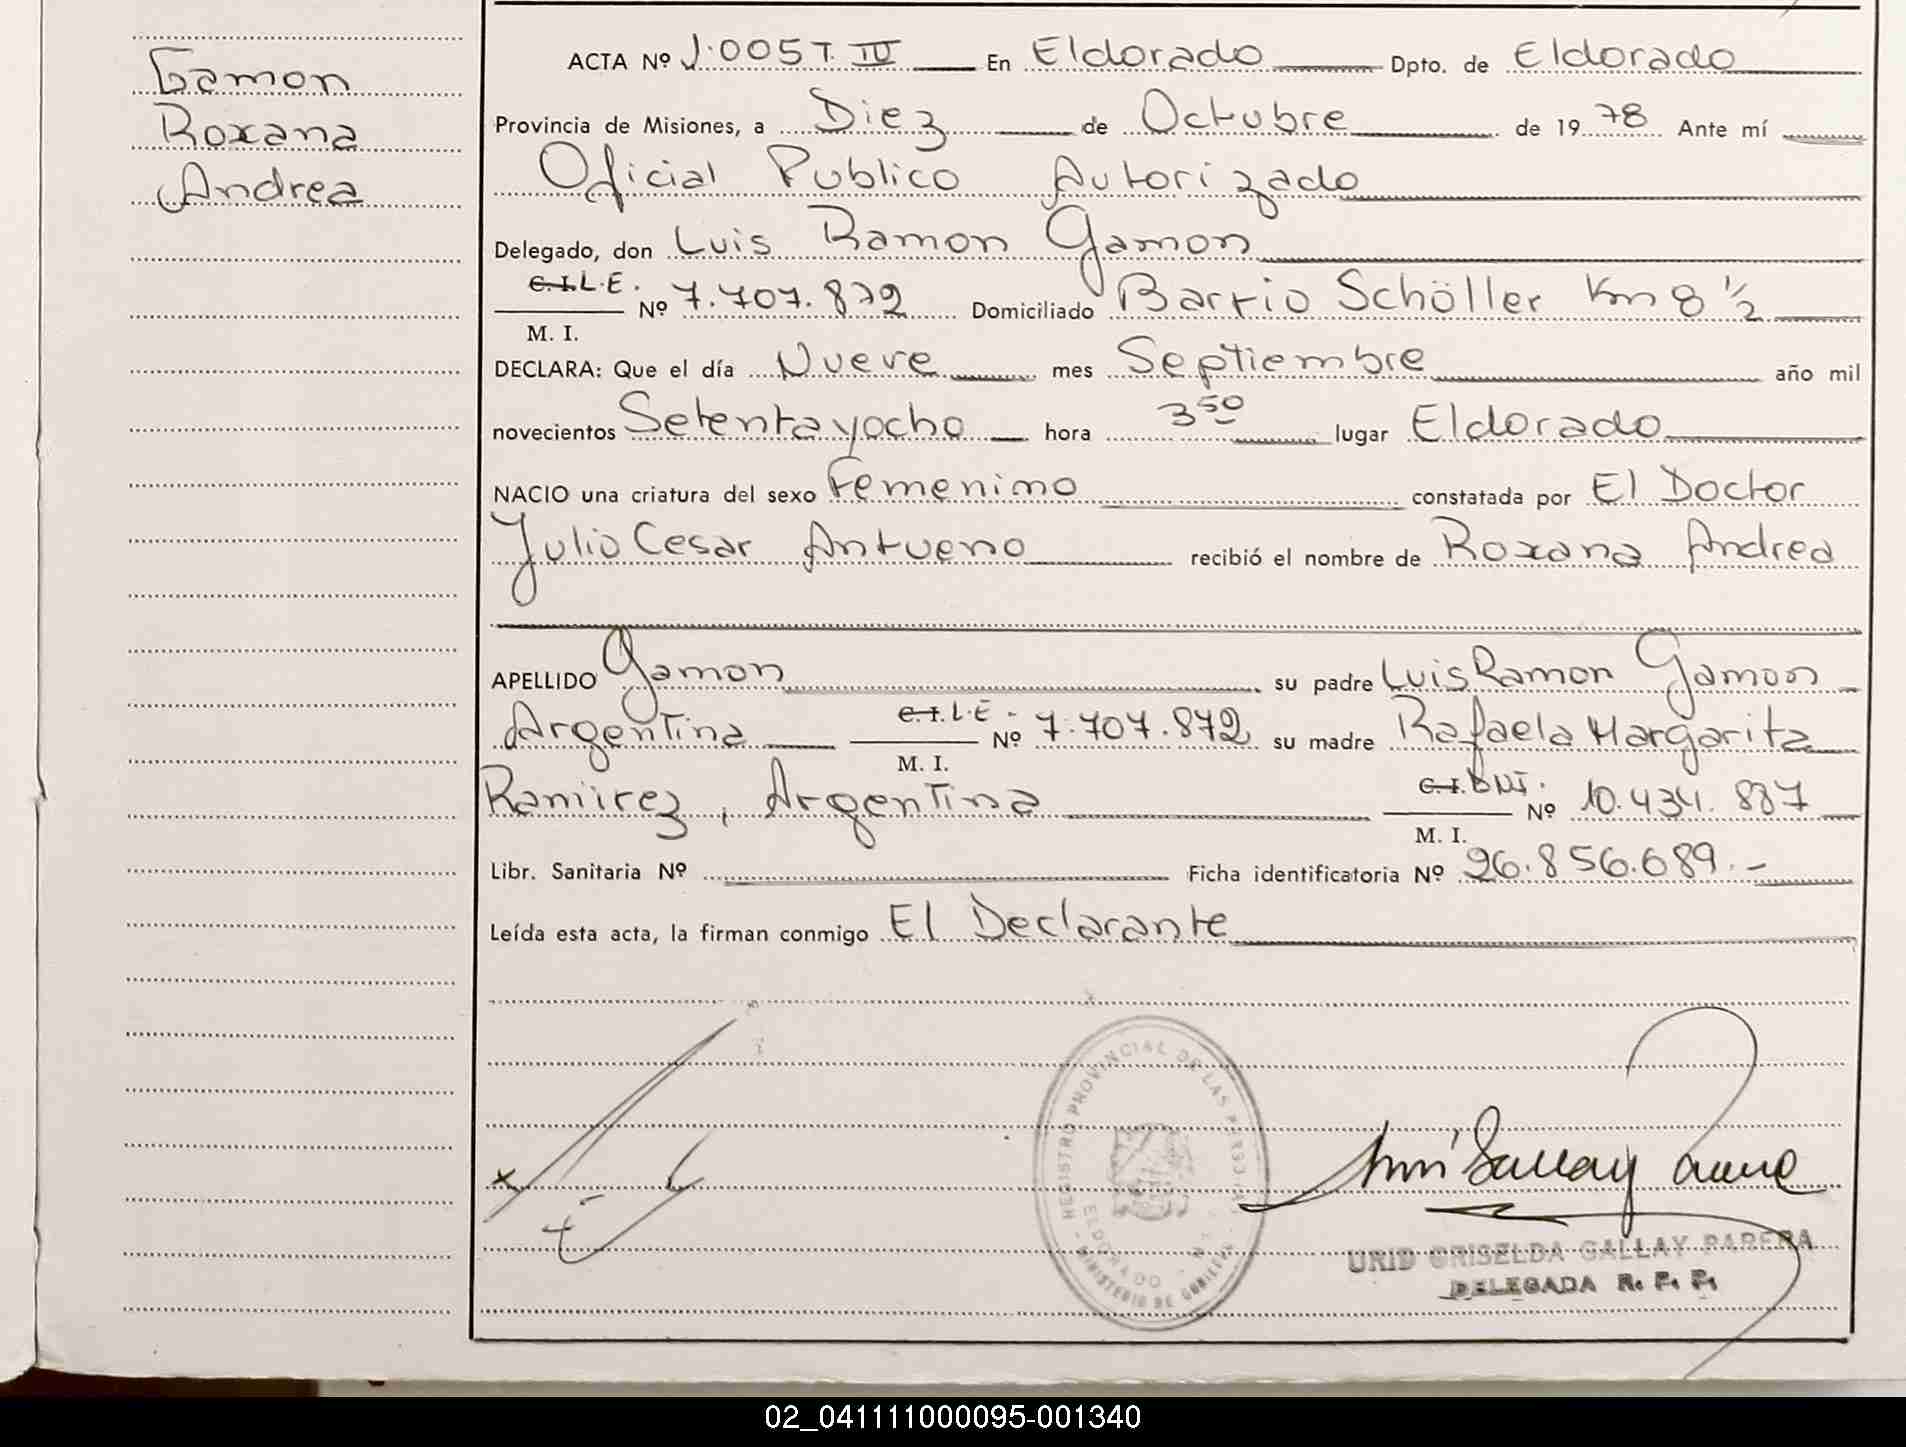 Gamon
Roxana
Andrea
ACTA Nº 1.005 T. IV En Eldorado Dpto. de Eldorado
Provincia de Misiones, a Diez de Octubre de 1978 Ante mí
Oficial Publico Autorizado
Delegado, don Luis Ramon Gamon
C.I. L.E. M. I. Nº 7.707.872 Domiciliado Barrio Schöller Km 8 1/2
DECLARA: Que el día Nueve mes Septiembre año mil
novecientos Setentayocho hora 3 50 lugar Eldorado
NACIO una criatura del sexo Femenino constatada por El Doctor
Julio Cesar Antueno recibió el nombre de Roxana Andrea
APELLIDO Gamon su padre Luis Ramon Gamon
Argentina C.I. L.E. M. I. Nº 7.707.872 su madre Rafaela Margarita
Ramirez, Argentina C.I. DNI. M. I. Nº 10.434.887
Libr. Sanitaria Nº Ficha identificatoria Nº 26.856.689.-
Leída esta acta, la firman conmigo El Declarante
REGISTRO PROVINCIAL DE LAS PERSONAS
ELDORADO
MINISTERIO DE GOBIERNO
URID GRISELDA GALLAY PARERA
DELEGADA R. P. P.
02_041111000095-001340